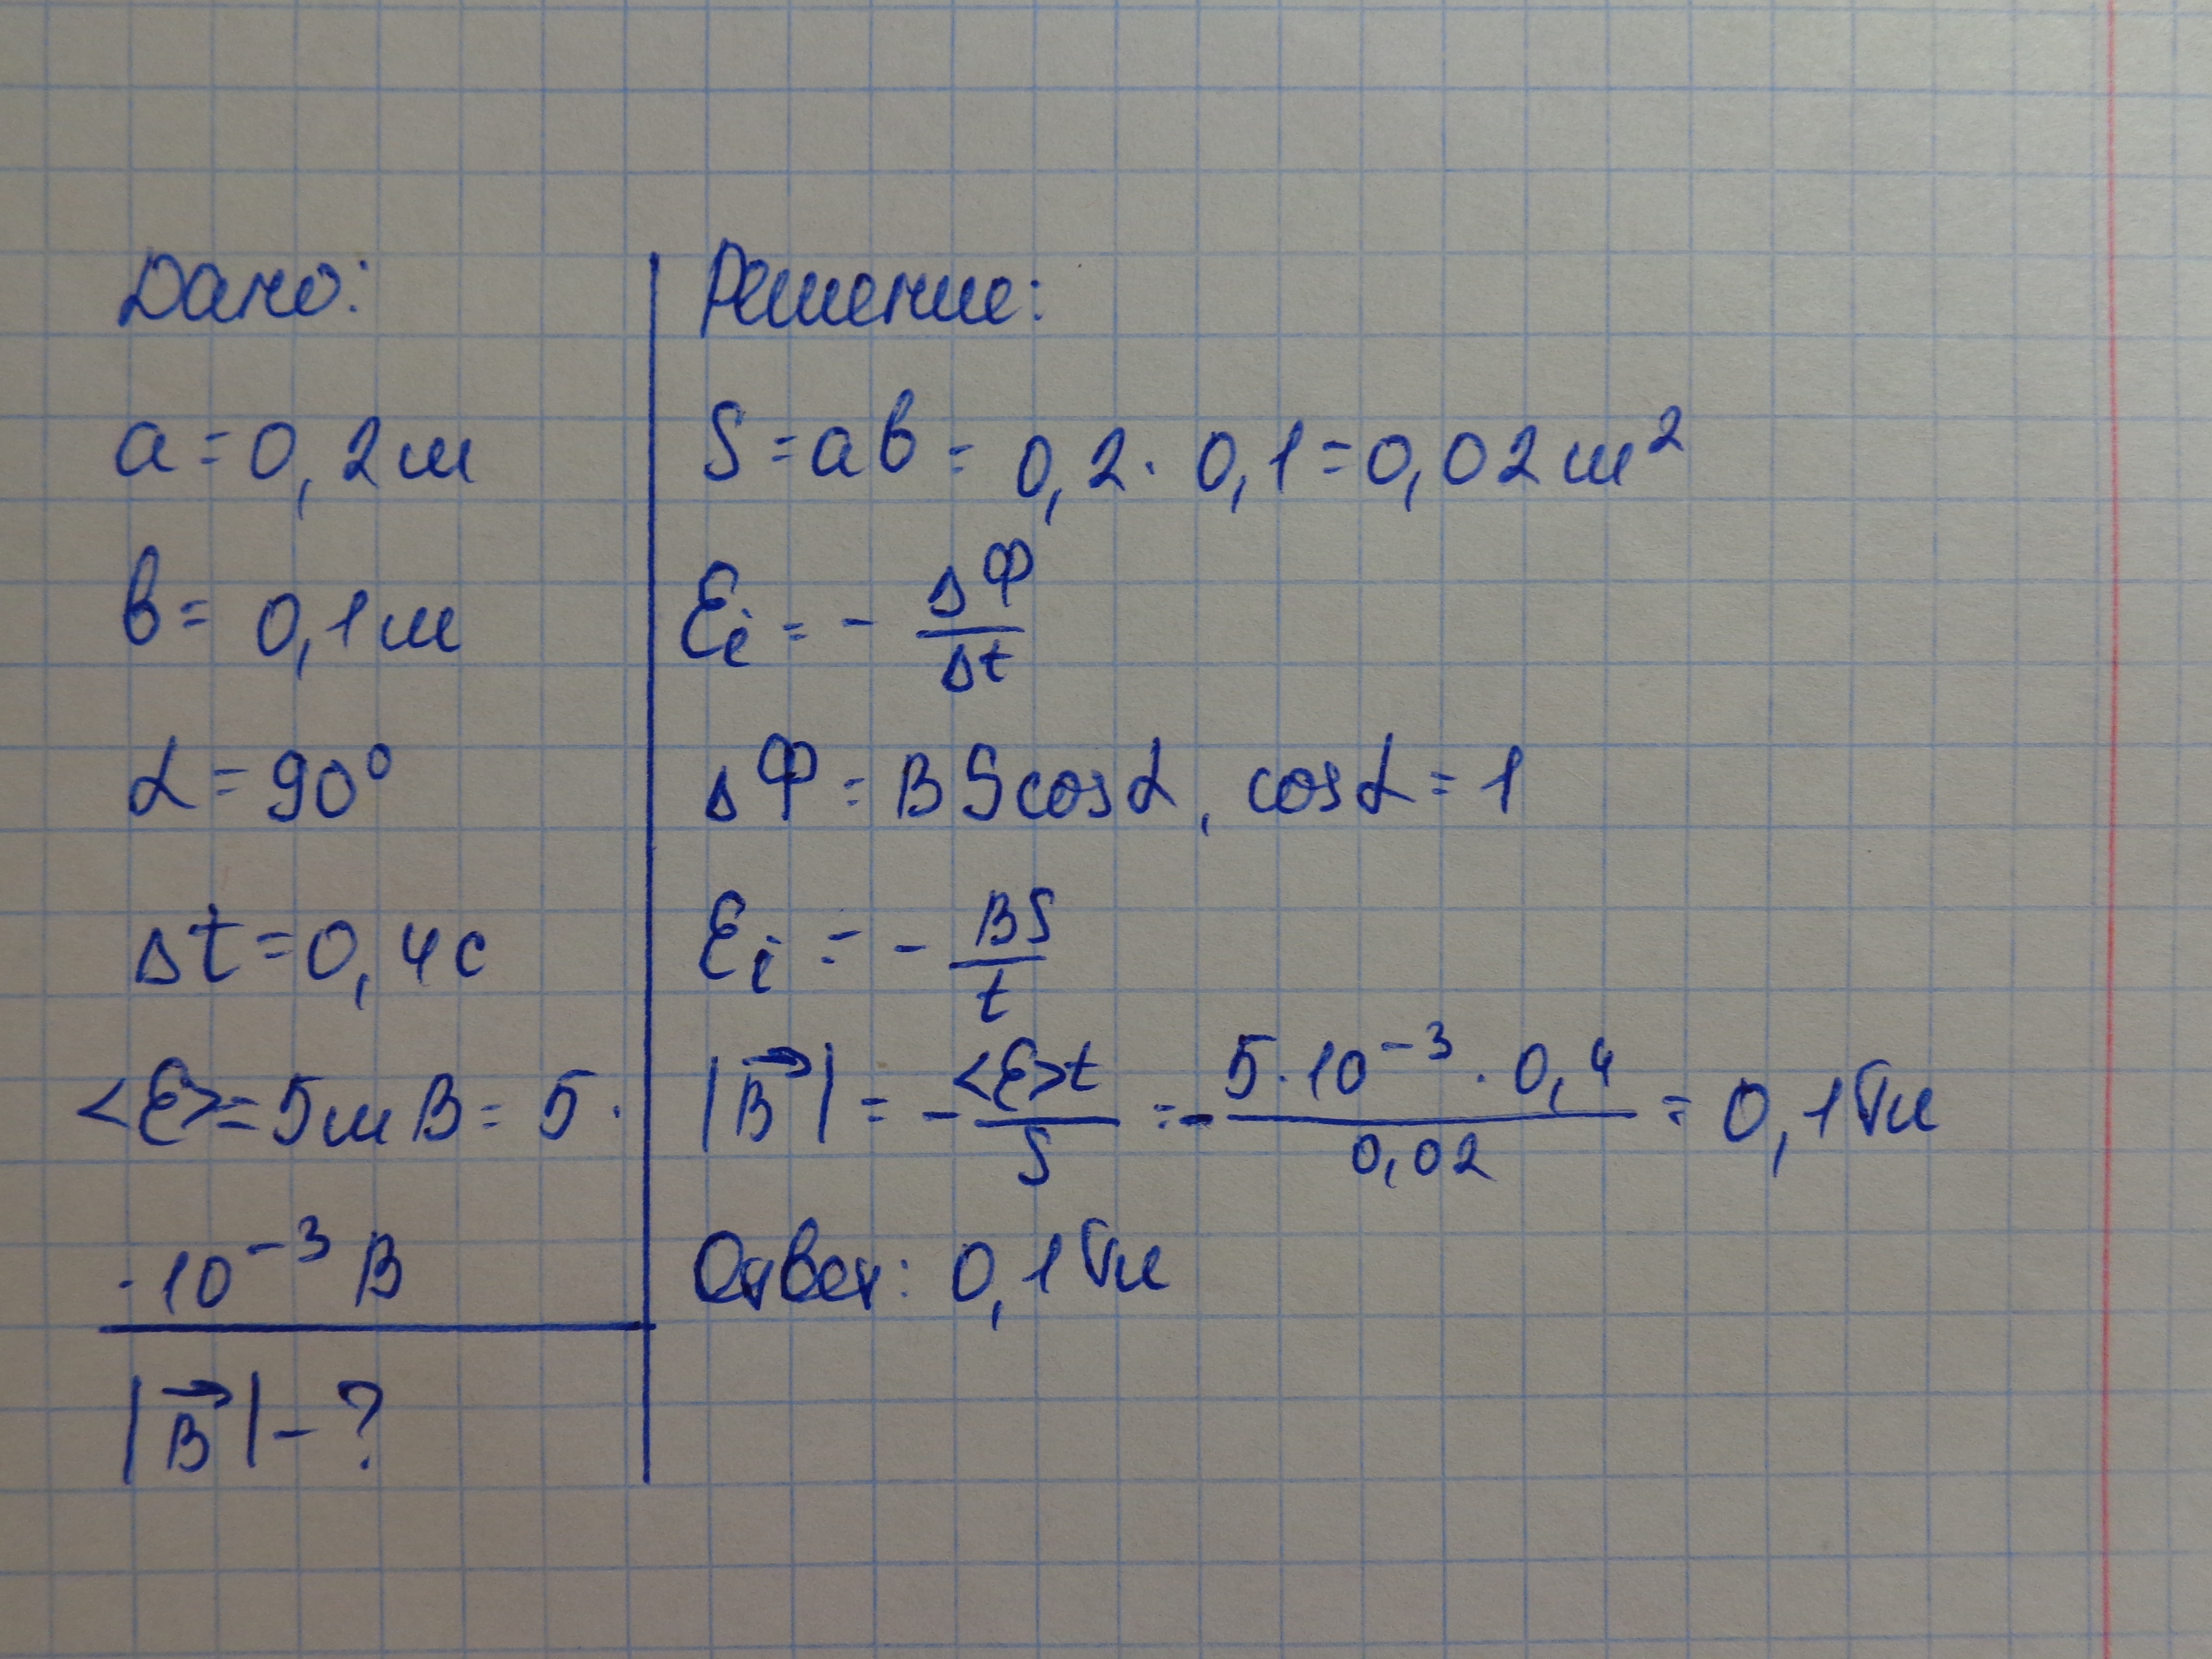 Дано:
a = 0,2 м
в = 0,1 м
α = 90°
Δt = 0,4 с
<ℰ> = 5 мВ = 5 ·
· 10⁻³ В
|B⃗| - ?
Решение:
S = aв = 0,2 · 0,1 = 0,02 м²
ℰi = - ΔФ/Δt
ΔФ = BS cosα, cosα = 1
ℰi = - BS/t
|B⃗| = - <ℰ>t/S = - 5·10⁻³ · 0,4/0,02 = 0,1 Тл
Ответ: 0,1 Тл